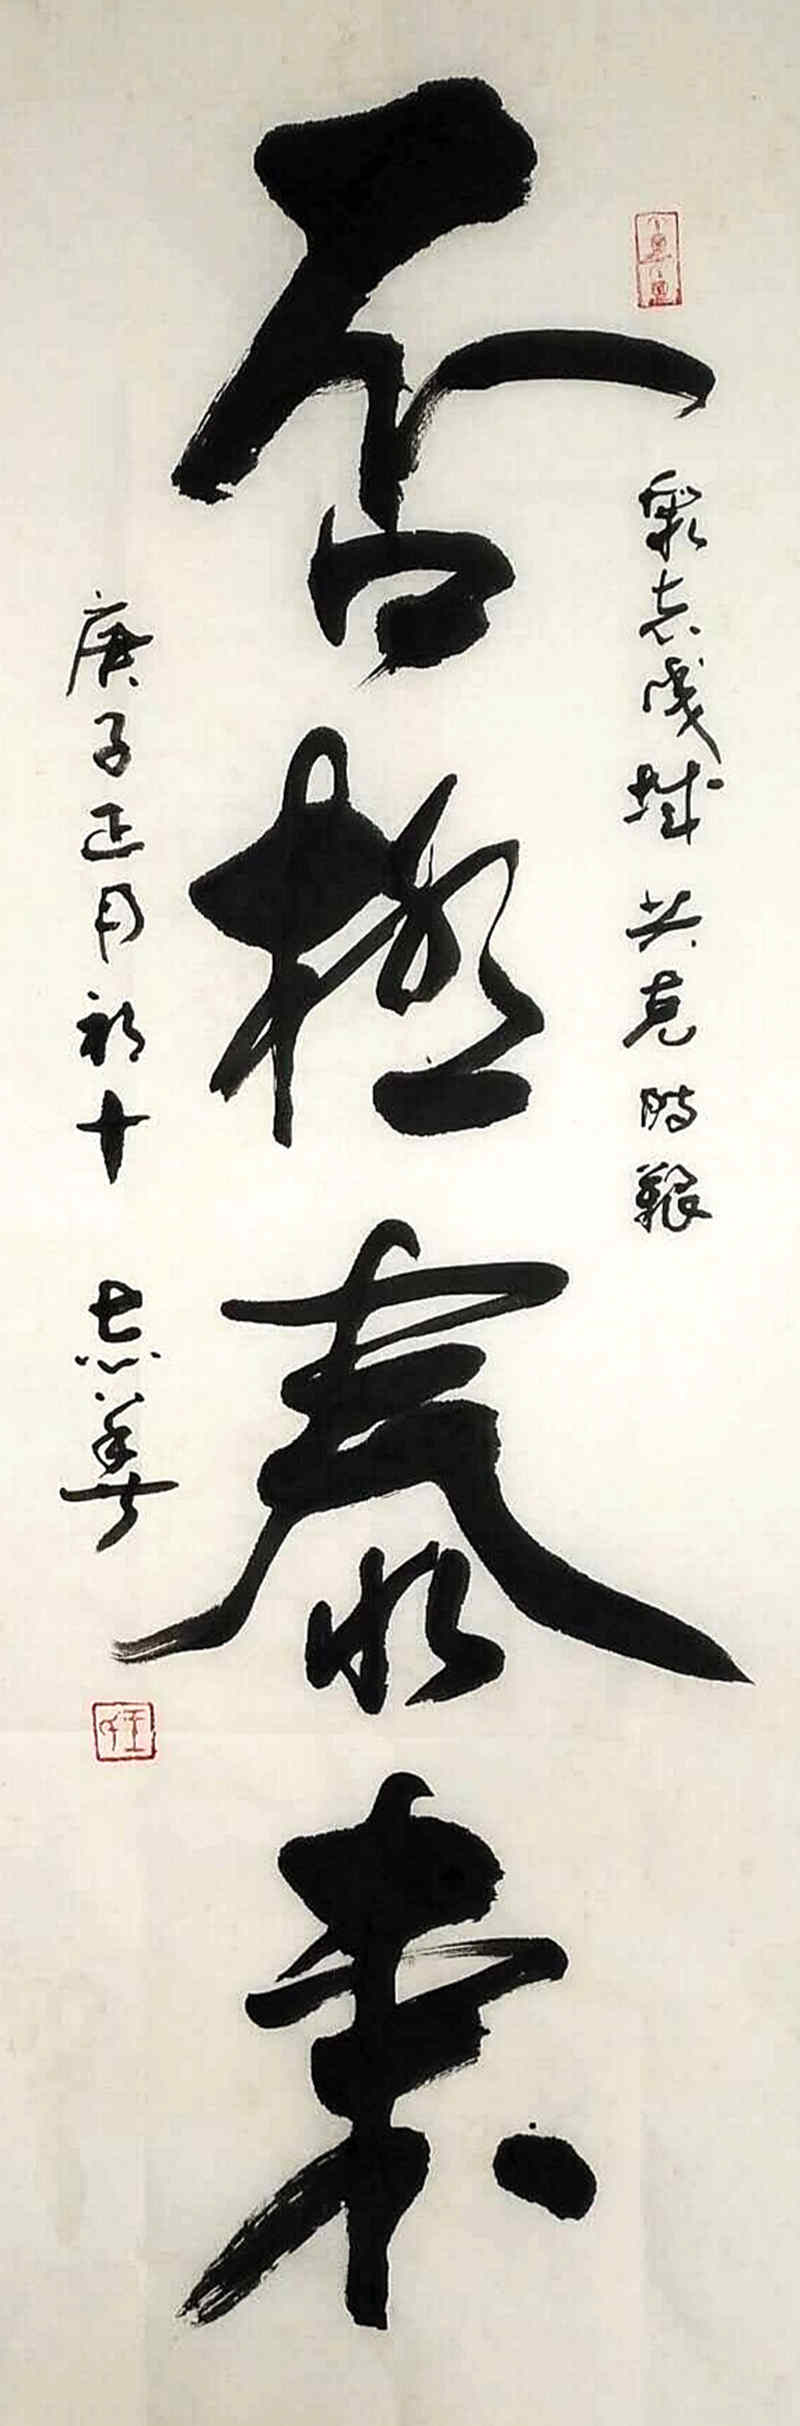 众志成城 共克时艰
否极泰来
庚子正月初十 志华